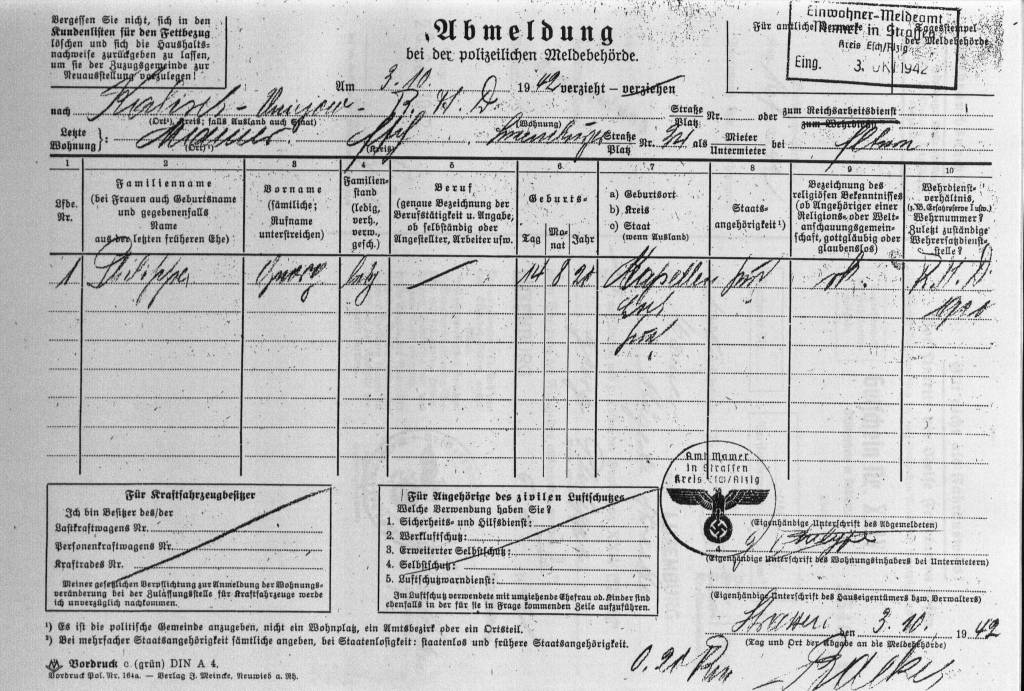 Vergessen Sie nicht, sich in den
Kundenlisten für den Fettbezug
löschen und sich die Haushalts-
nachweise zurückgeben zu lassen,
um sie der Zuzugsgemeinde zur
Neuausstellung vorzulegen!
Abmeldung
bei der polizeilichen Meldebehörde.
Für amtliche Vermerke
Tagesstempel
der Meldebehörde
Einwohner-Meldeamt
Mamer in Strassen
Kreis Esch/Alzig
Eing. 3. OKT 1942
Am 3. 10. 1942 verzieht – verziehen
nach Kalisch - R. A. D.
(Ort); Kreis; falls Ausland auch Staat)
(Wohnung)
Straße
Platz Nr. oder zum Reichsarbeitsdienst
zum Wehrdienst
Letzte
Wohnung }: Mamer Esch Luxemburger Straße
Platz Nr. als Mieter
Untermieter bei
(Ort)
(Kreis)
1 2 3 4 5 6 7 8 9 10
Lfde.
Nr.
Familienname
(bei Frauen auch Geburtsname
und gegebenenfalls
Name
aus der letzten früheren Ehe)
Vorname
(sämtliche;
Rufname
unterstreichen)
Familien-
stand
(ledig,
verh.,
verw.,
gesch.)
Beruf
(genaue Bezeichnung der
Berufstätigkeit u. Angabe,
ob selbständig oder
Angestellter, Arbeiter usw.
Geburts-
Tag Mo-
nat Jahr
a) Geburtsort
b) Kreis
c) Staat
(wenn Ausland)
Staats-
angehörigkeit ¹)
Bezeichnung des
religiösen Bekenntnisses
(ob Angehöriger einer
Religions- oder Welt-
anschauungsgemein-
schaft, gottgläubig oder
glaubenslos)
Wehrdienst-
verhältnis,
(z. B. Ersatzreserve I usw.)
Wehrnummer?
Zuletzt zuständige
Wehrersatzdienst-
stelle?
1 Philippe Georg ledig — 14 8 20 Kapellen rk. R. A. D.
Amt Mamer
in Strassen
Kreis Esch/Alzig
Für Kraftfahrzeugbesitzer
Ich bin Besitzer des/der
Lastkraftwagens Nr.
Personenkraftwagens Nr.
Kraftrades Nr.
Meiner gesetzlichen Verpflichtung zur Anmeldung der Wohnungs-
veränderung bei der Zulassungsstelle für Kraftfahrzeuge werde
ich unverzüglich nachkommen.
Für Angehörige des zivilen Luftschutzes
Welche Verwendung haben Sie?
1. Sicherheits- und Hilfsdienst:
2. Werkluftschutz:
3. Erweiterter Selbstschutz:
4. Selbstschutz:
5. Luftschutzwarndienst:
Im Luftschutz verwendete mit umziehende Ehefrau ob. Kinder sind
ebenfalls in der für sie in Frage kommenden Zeile aufzuführen.
(Eigenhändige Unterschrift des Abgemeldeten)
Philippe
(Eigenhändige Unterschrift des Wohnungsinhabers bei Untermietern)
(Eigenhändige Unterschrift des Hauseigentümers bzw. Verwalters)
Strassen den 3. 10. 1942
(Tag und Ort der Abgabe an die Meldebehörde)
¹) Es ist die politische Gemeinde anzugeben, nicht ein Wohnplatz, ein Amtsbezirk oder ein Ortsteil.
²) Bei mehrfacher Staatsangehörigkeit sämtliche angeben, bei Staatenlosigkeit: staatenlos und frühere Staatsangehörigkeit.
Vordruck o. (grün) DIN A 4.
Vordruck Pol. Nr. 164a. — Verlag J. Meincke, Neuwied a. Rh.